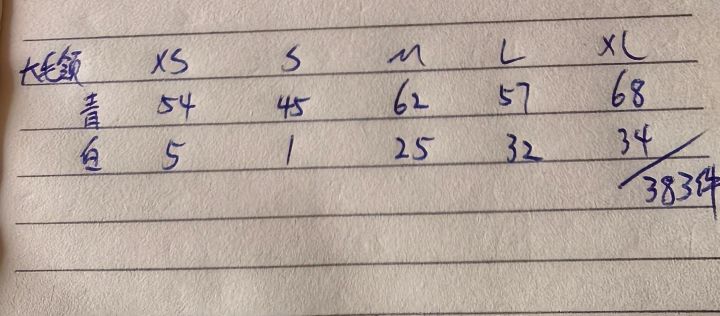 大毛領 XS S M L XL
青 54 45 62 57 68
白 5 1 25 32 34
383件